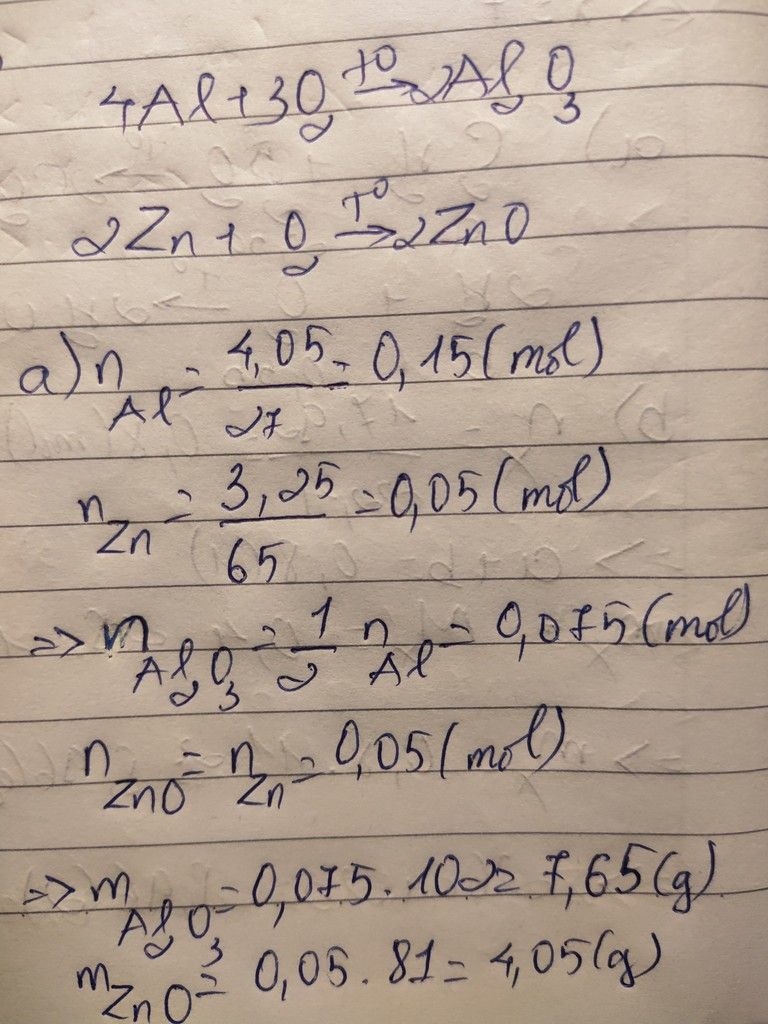 4Al + 3O₂ →(t⁰) 2Al₂O₃
2Zn + O₂ →(t⁰) 2ZnO
a) n_Al = 4,05/27 = 0,15 (mol)
n_Zn = 3,25/65 = 0,05 (mol)
=> n_Al₂O₃ = 1/2 n_Al = 0,075 (mol)
n_ZnO = n_Zn = 0,05 (mol)
=> m_Al₂O₃ = 0,075 . 102 = 7,65 (g)
m_ZnO = 0,05 . 81 = 4,05 (g)